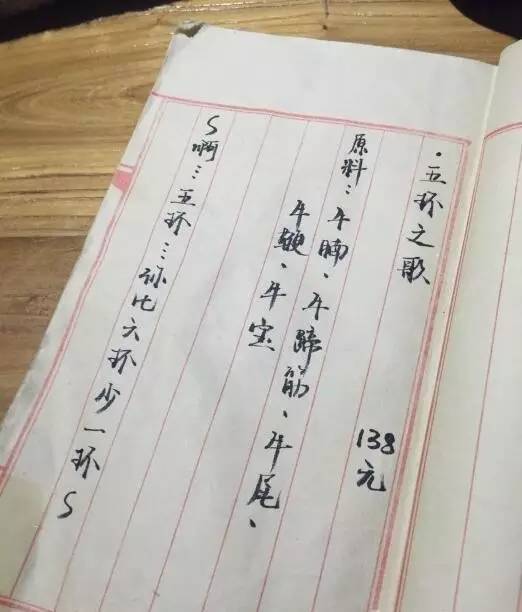 ·五环之歌
138元
原料：牛腩、牛蹄筋、牛尾、
牛鞭、牛宝
~啊…五环…你比六环少一环~